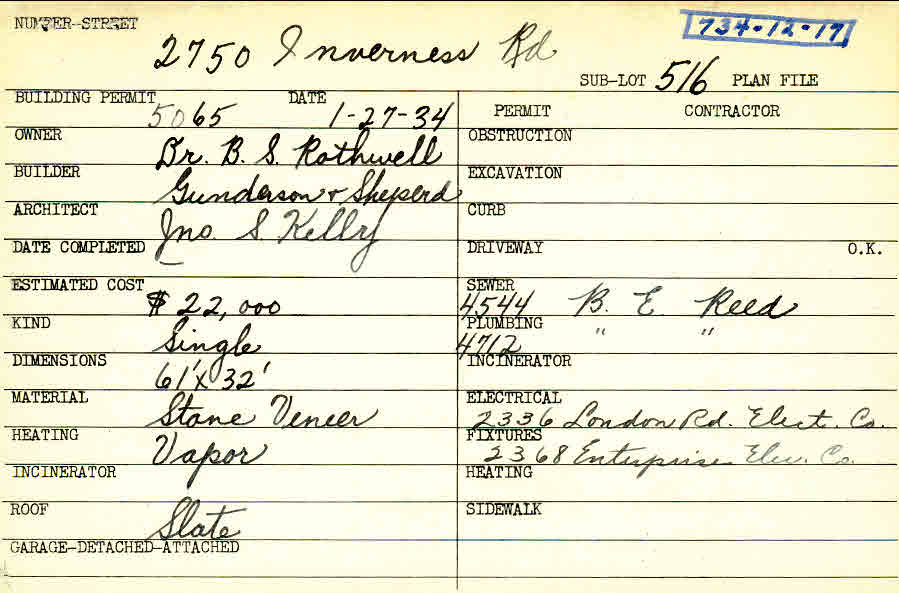 NUMBER-STREET
734-12-17
2750 Inverness Rd
SUB-LOT 516 PLAN FILE
BUILDING PERMIT 5065 DATE 1-27-34
OWNER Dr. B. S. Rothwell
BUILDER Gunderson + Sheperd
ARCHITECT Jno. S Kelly
DATE COMPLETED
ESTIMATED COST $22,000
KIND Single
DIMENSIONS 61' X 32'
MATERIAL Stone Veneer
HEATING Vapor
INCINERATOR
ROOF Slate
GARAGE-DETACHED-ATTACHED
PERMIT CONTRACTOR
OBSTRUCTION
EXCAVATION
CURB
DRIVEWAY O.K.
SEWER 4544 B. E. Reed
PLUMBING 4712 " "
INCINERATOR
ELECTRICAL 2336 London Rd. Elect. Co.
FIXTURES 2368 Enterprise Elec. Co.
HEATING
SIDEWALK